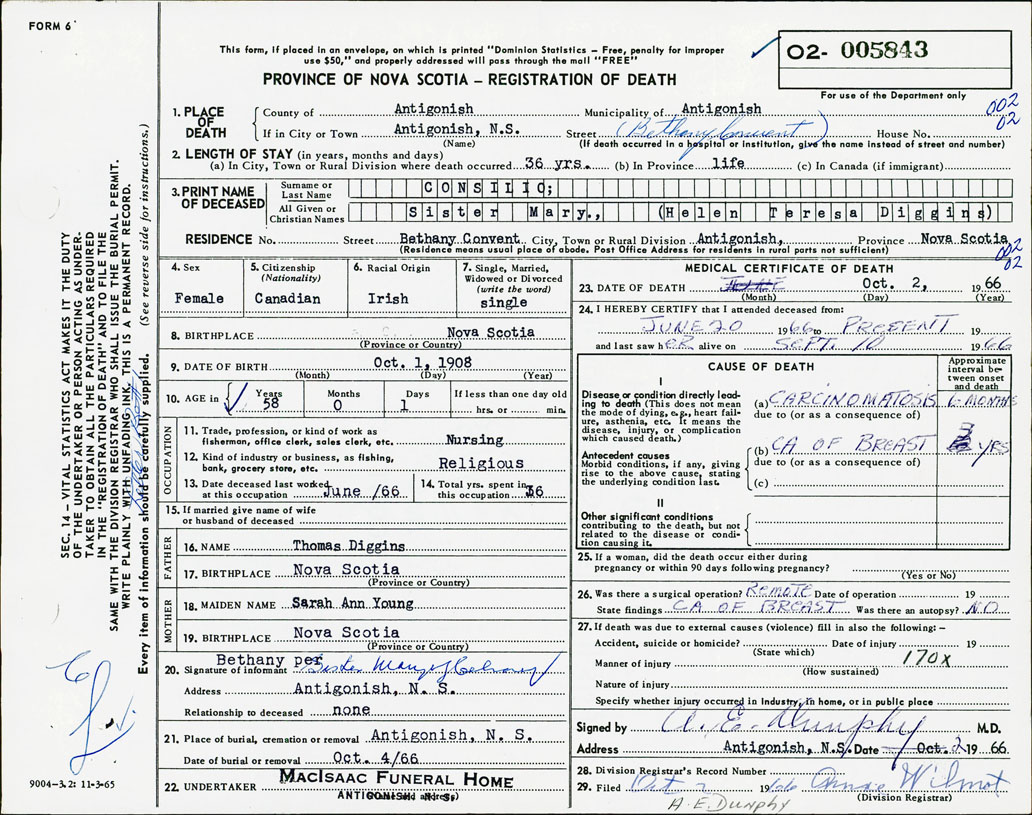 FORM 6
This form, if placed in an envelope, on which is printed "Dominion Statistics – Free, penalty for improper
use $50," and properly addressed will pass through the mail "FREE"
PROVINCE OF NOVA SCOTIA – REGISTRATION OF DEATH
02- 005843
For use of the Department only
002
02
1. PLACE OF DEATH County of Antigonish Municipality of Antigonish
If in City or Town Antigonish, N.S. Street (Bethany Convent) House No.
(Name) (If death occurred in a hospital or institution, give the name instead of street and number)
2. LENGTH OF STAY (in years, months and days)
(a) In City, Town or Rural Division where death occurred 36 yrs. (b) In Province life (c) In Canada (if immigrant)
3. PRINT NAME OF DECEASED Surname or Last Name CONSILIO;
All Given or Christian Names Sister Mary., (Helen Teresa Diggins)
RESIDENCE No. Street Bethany Convent City, Town or Rural Division Antigonish, Province Nova Scotia
(Residence means usual place of abode. Post Office Address for residents in rural parts not sufficient)
002
02
4. Sex Female
5. Citizenship (Nationality) Canadian
6. Racial Origin Irish
7. Single, Married, Widowed or Divorced (write the word) single
8. BIRTHPLACE Nova Scotia
(Province or Country)
9. DATE OF BIRTH Oct. 1, 1908
(Month) (Day) (Year)
10. AGE in Years 58 Months 0 Days 1 If less than one day old hrs. or min.
OCCUPATION
11. Trade, profession, or kind of work as
fisherman, office clerk, sales clerk, etc. Nursing
12. Kind of industry or business, as fishing,
bank, grocery store, etc. Religious
13. Date deceased last worked
at this occupation June /66
14. Total yrs. spent in
this occupation 36
15. If married give name of wife
or husband of deceased
FATHER
16. NAME Thomas Diggins
17. BIRTHPLACE Nova Scotia
(Province or Country)
MOTHER
18. MAIDEN NAME Sarah Ann Young
19. BIRTHPLACE Nova Scotia
(Province or Country)
Bethany per
20. Signature of informant Sister
Address Antigonish, N. S.
Relationship to deceased none
21. Place of burial, cremation or removal Antigonish, N. S.
Date of burial or removal Oct. 4/66
22. UNDERTAKER MacIsaac Funeral Home
ANTIGONISH, N. S.
MEDICAL CERTIFICATE OF DEATH
23. DATE OF DEATH Oct. 2, 1966
(Month) (Day) (Year)
24. I HEREBY CERTIFY that I attended deceased from:
JUNE 20 1966 to PRESENT 19
and last saw hER alive on SEPT. 10 1966
CAUSE OF DEATH
Approximate interval between onset and death
I
Disease or condition directly leading to death (This does not mean the mode of dying, e.g., heart failure, asthenia, etc. It means the disease, injury, or complication which caused death.)
(a) CARCINOMATOSIS 6 MONTHS
due to (or as a consequence of)
Antecedent causes
Morbid conditions, if any, giving rise to the above cause, stating the underlying condition last.
(b) CA OF BREAST YRS
due to (or as a consequence of)
(c)
II
Other significant conditions
contributing to the death, but not related to the disease or condition causing it.
25. If a woman, did the death occur either during
pregnancy or within 90 days following pregnancy?
(Yes or No)
26. Was there a surgical operation? REMOTE Date of operation 19
State findings CA OF BREAST Was there an autopsy? NO
27. If death was due to external causes (violence) fill in also the following: –
Accident, suicide or homicide? Date of injury 19
(State which)
Manner of injury 170X
(How sustained)
Nature of injury
Specify whether injury occurred in Industry, in home, or in public place
Signed by A. E. Dunphy M.D.
Address Antigonish, N.S. Date Oct. 2 1966
28. Division Registrar's Record Number
29. Filed Oct 1966 Wilmot
(Division Registrar)
A.E. DUNPHY
SEC. 14 – VITAL STATISTICS ACT MAKES IT THE DUTY
OF THE UNDERTAKER OR PERSON ACTING AS UNDER-
TAKER TO OBTAIN ALL THE PARTICULARS REQUIRED
IN THE "REGISTRATION OF DEATH" AND TO FILE THE
SAME WITH THE DIVISION REGISTRAR WHO SHALL ISSUE THE BURIAL PERMIT.
WRITE PLAINLY WITH UNFADING INK. THIS IS A PERMANENT RECORD.
Every item of information should be carefully supplied. (See reverse side for instructions.)
9004-3.2: 11-3-65